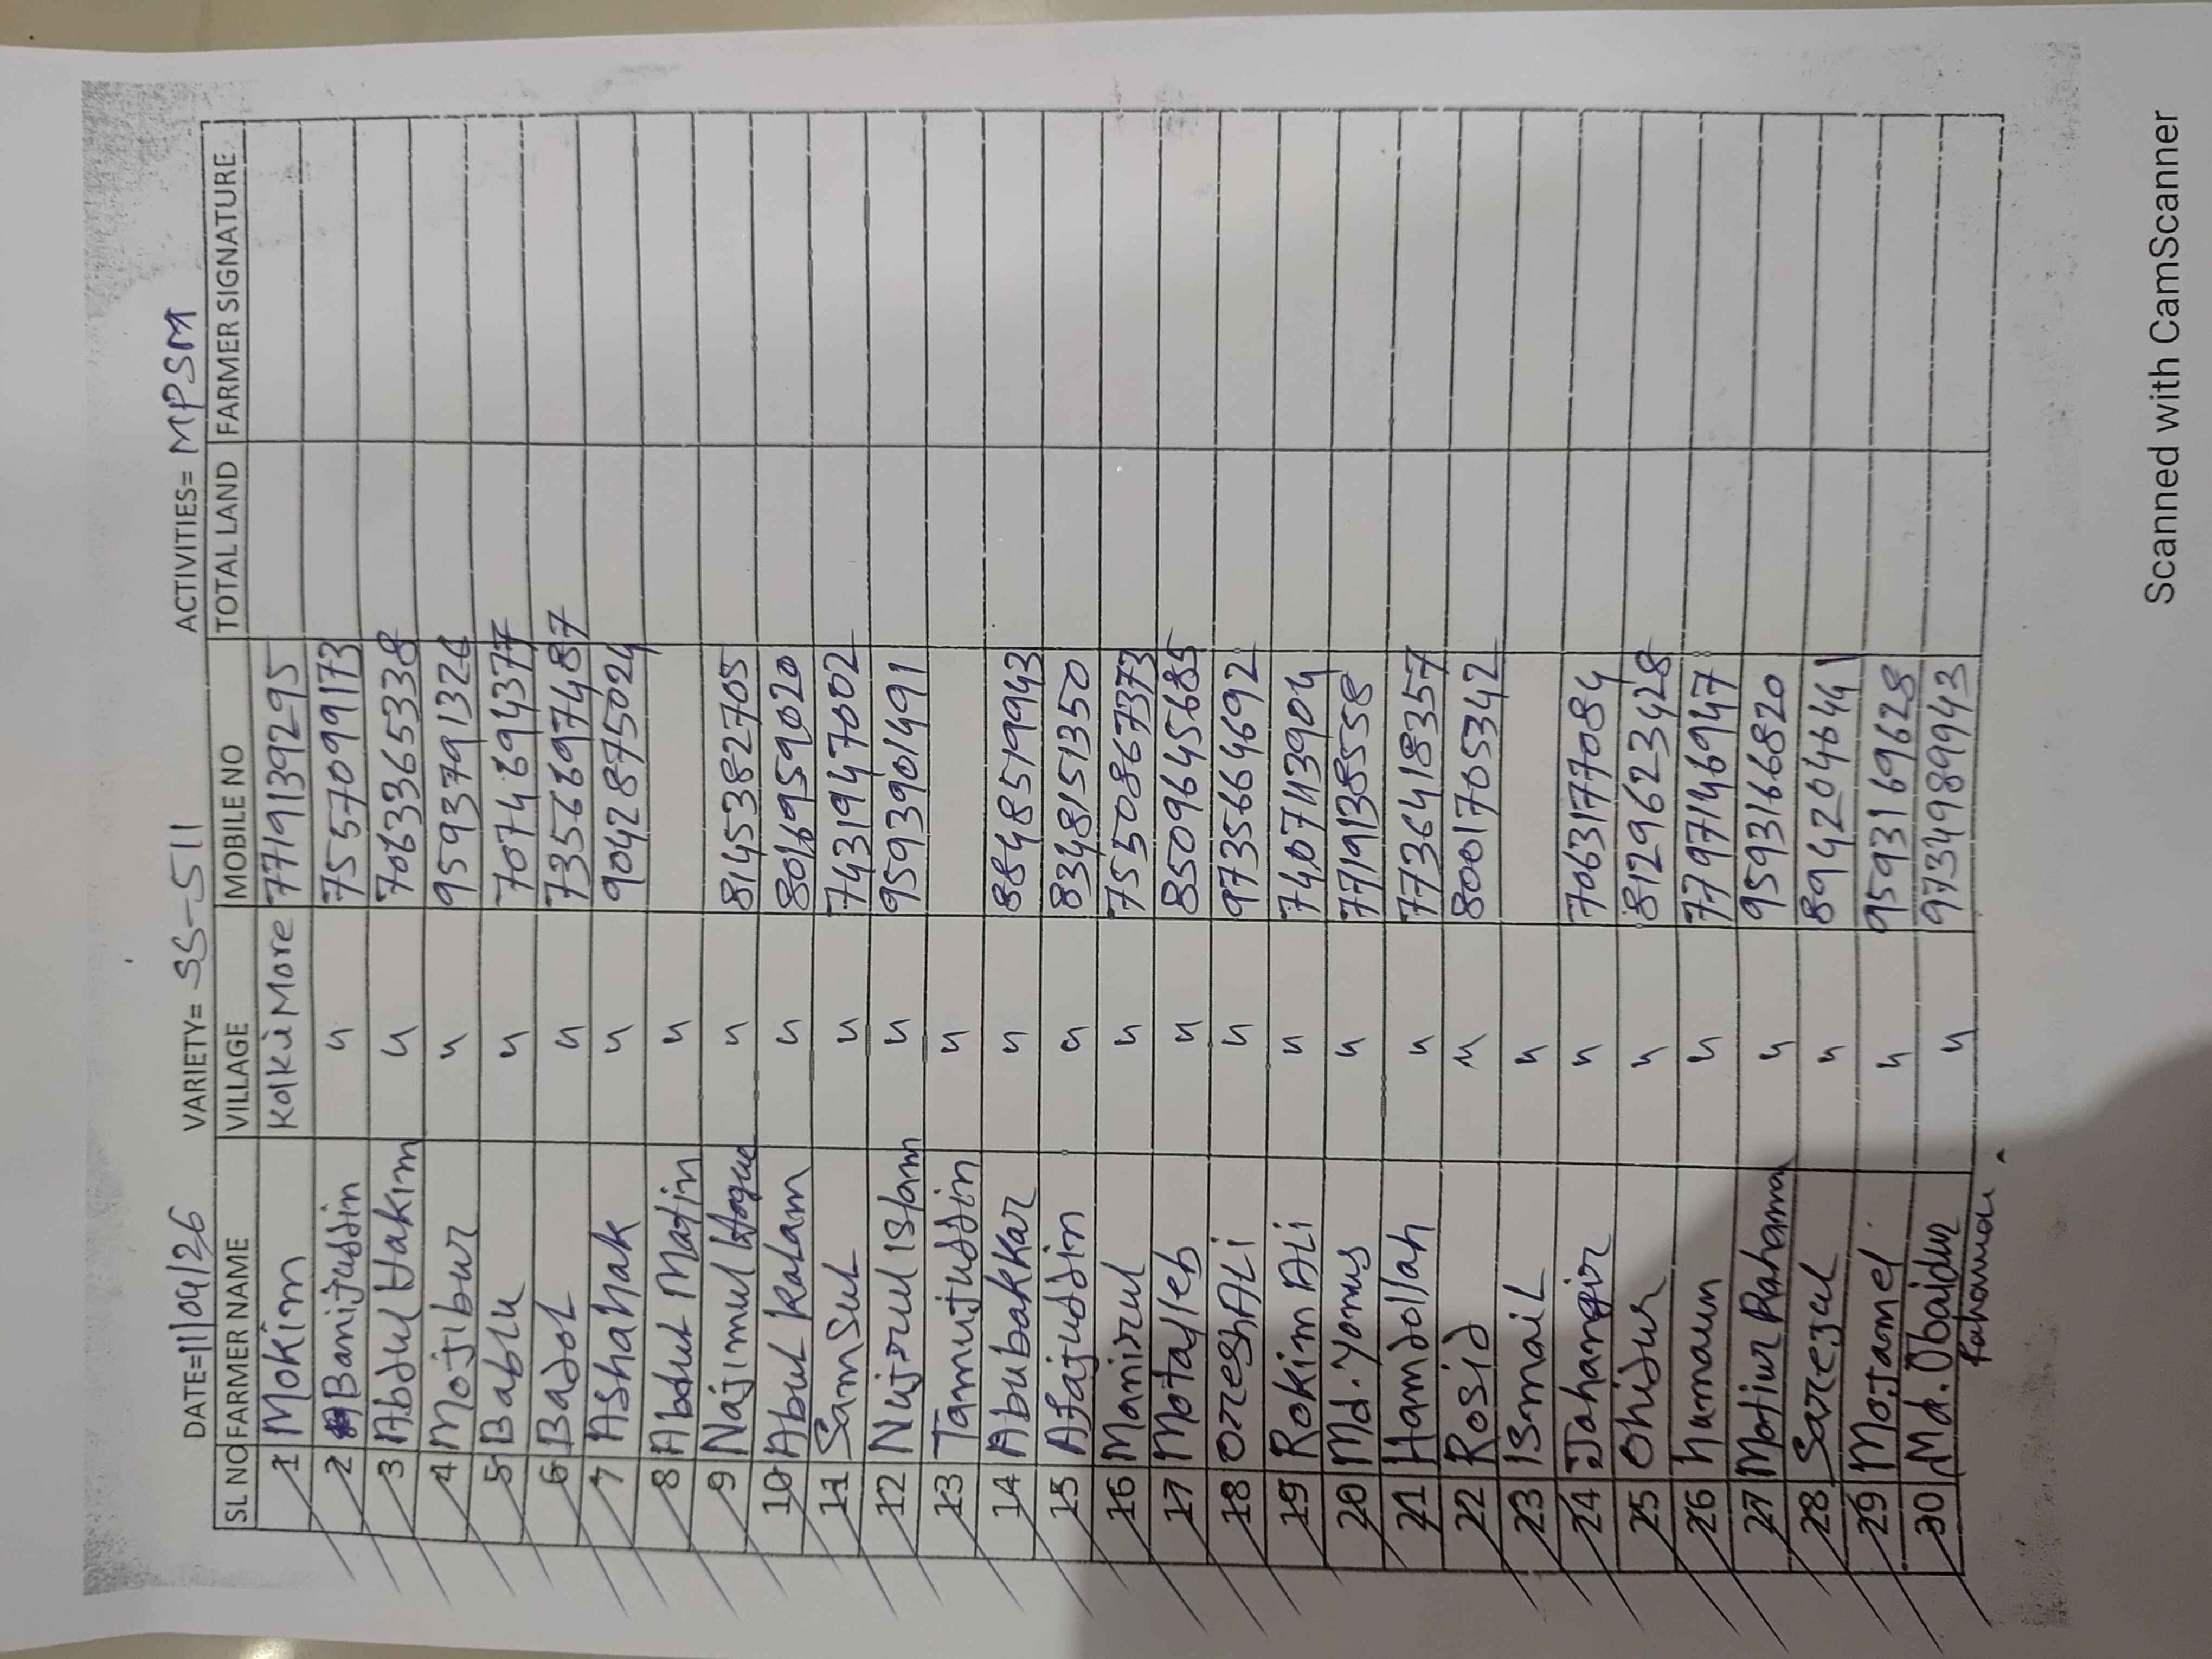 DATE=11/04/26 VARIETY= SS-511 ACTIVITIES= MPSM
SL NO FARMER NAME VILLAGE MOBILE NO TOTAL LAND FARMER SIGNATURE
1 Mokim Kolki More 7719139295
2 Banijuddin " 7557099173
3 Abdul Hakim " 7063365338
4 Mojibur " 9593791326
5 Bablu " 7074694377
6 Badol " 7356697487
7 Ashahak " 9042875024
8 Abdul Matin "
9 Najimul Hoque " 8145382705
10 Abul Kalam " 8016959020
11 Samsul " 7431947002
12 Nujrul Islam " 9593901491
13 Tamijuddin "
14 Abubakkar " 8848519943
15 Afajuddin " 8348151350
16 Manirul " 7550867373
17 Motalleb " 8509645685
18 Orresh ALi " 9735664692
19 Rokim ALi " 7407113904
20 Md. Yonus " 7719138558
21 Hamdollah " 7736418357
22 Rosid " 8001705342
23 Ismail "
24 Jahangir " 7063177084
25 Ohidur " 8129623428
26 humaun " 7797146947
27 Motiur Rahaman " 9593166820
28 Sarejul " 8942046441
29 Mojamel " 9593169628
30 Md. Obaidur " 9734989943
Rahaman
Scanned with CamScanner